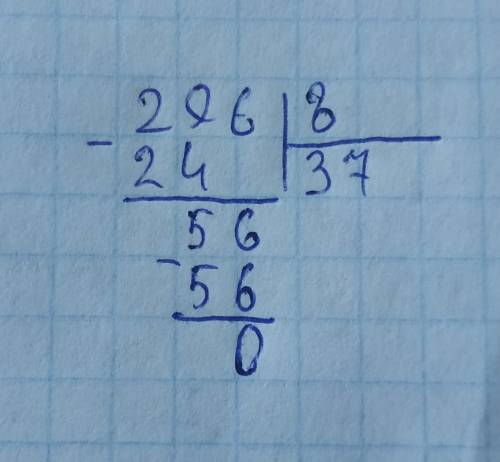 296 | 8
- 24 | 37
56
- 56
0